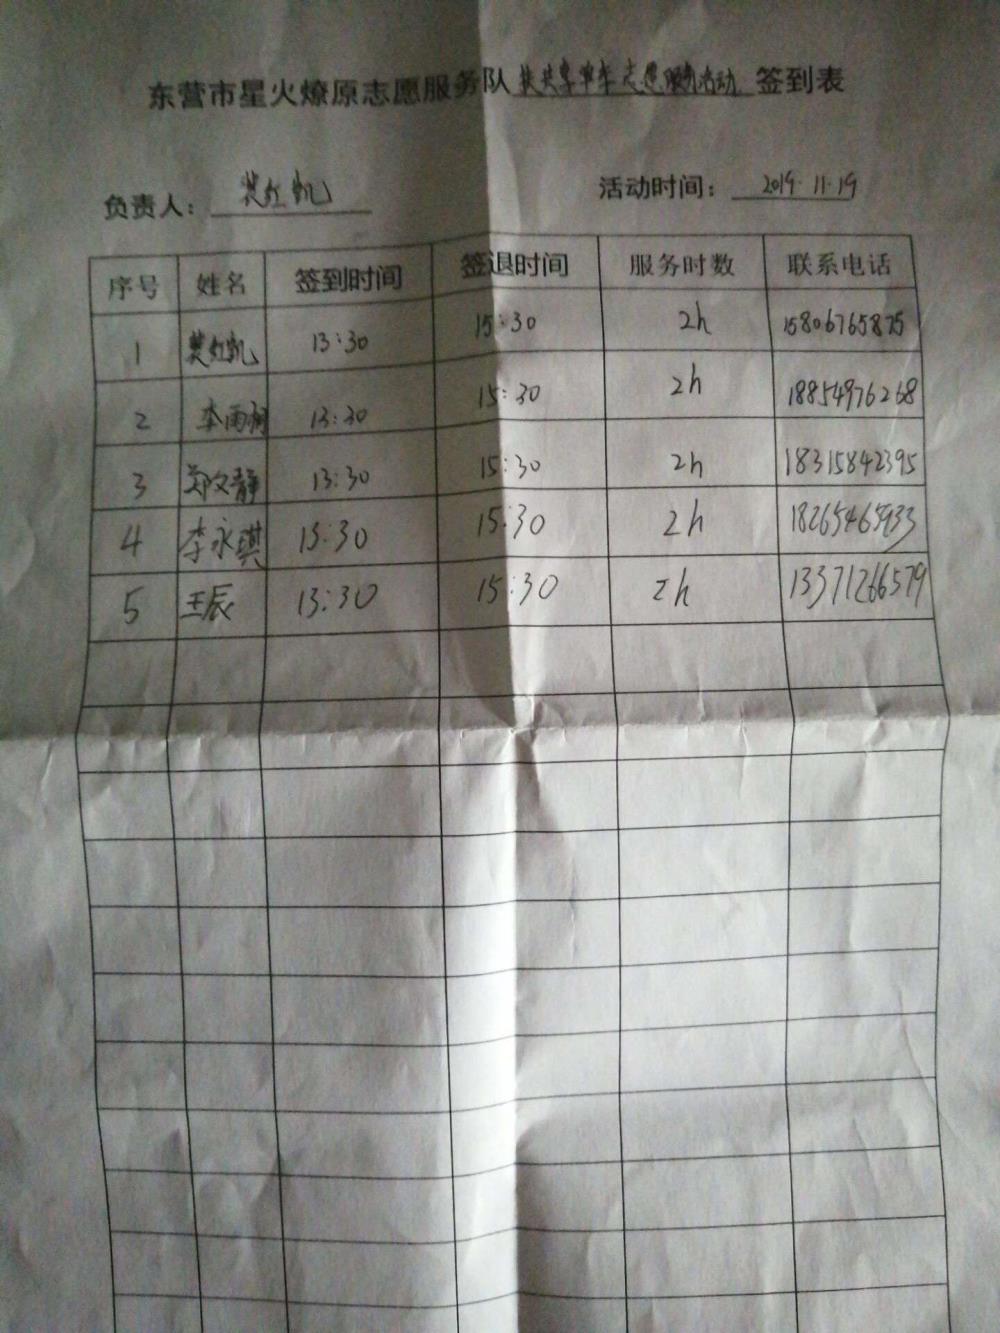 东营市星火燎原志愿服务队扶共享单车志愿服务活动 签到表
负责人： 红凯 活动时间： 2019.11.19
序号 姓名 签到时间 签退时间 服务时数 联系电话
1 红凯 13:30 15:30 2h 15806765875
2 李雨桐 13:30 15:30 2h 18854976268
3 郑文静 13:30 15:30 2h 18315842395
4 李永琪 13:30 15:30 2h 18265465933
5 王辰 13:30 15:30 2h 13371266579